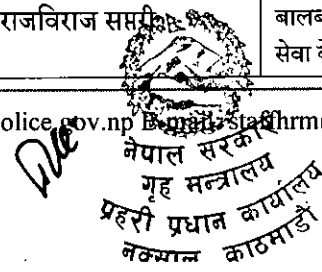 राजविराज सप्तरी
बालब
सेवा
olice.gov.np E-mail: staffhrm
नेपाल सरकार
गृह मन्त्रालय
प्रहरी प्रधान कार्यालय
नक्साल, काठमाडौं